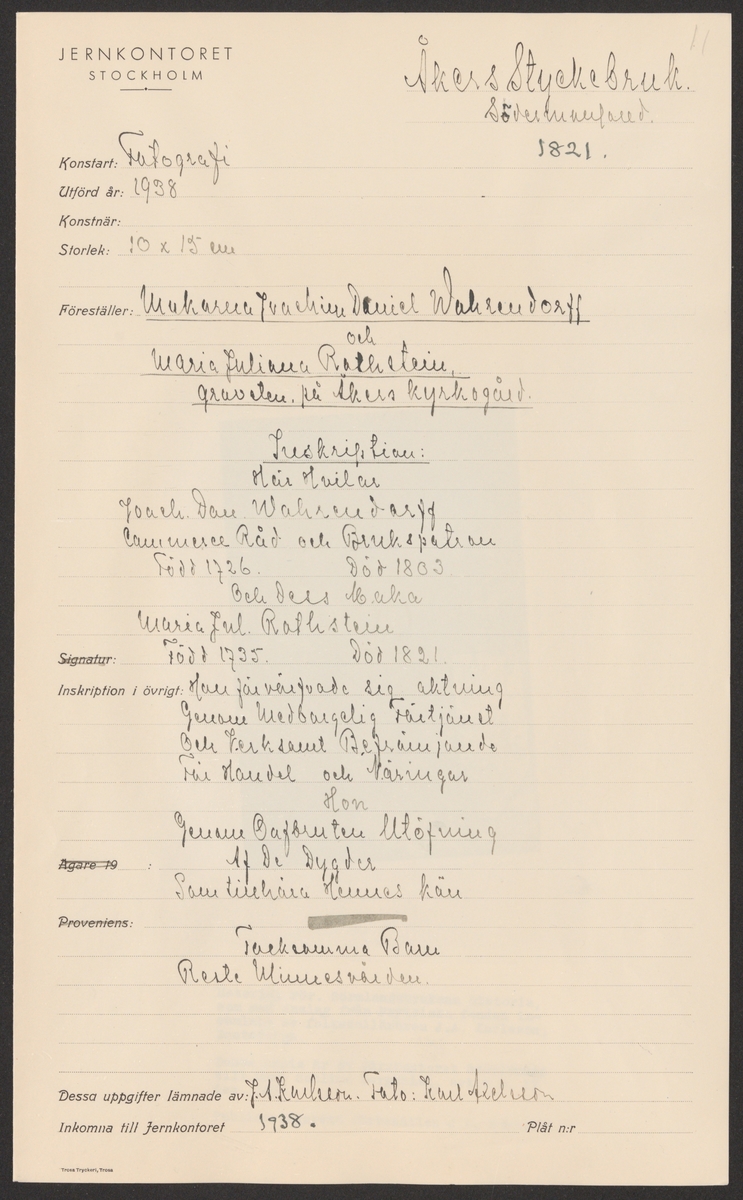 11
JERNKONTORET
STOCKHOLM
Åkers Styckebruk.
Södermanland.
1821.
Konstart: Fotografi
Utförd år: 1938
Konstnär:
Storlek: 10 x 15 cm
Föreställer: Makarna Joachim Daniel Wahrendorff
och
Maria Juliana Rothstein,
gravsten, på Åkers kyrkogård.
Inskription:
Här Hvilar
Joach. Dan Wahrendorff
Commerce Råd och Brukspatron
Född 1726. Död 1803.
Och Dess Maka
Maria Jul. Rothstein
Född 1735. Död 1821.
Signatur:
Inskription i övrigt: Han förvärfvade sig aktning
Genom Medborgelig Förtjänst
Och Verksamt Befrämjande
För Handel och Näringar
Hon
Genom Oafbruten Utöfning
Af De Dygder
Ägare 19 :
Som tillhöra Hennes kön
Proveniens:
Tacksamma Barn
Reste Minnesvården.
Dessa uppgifter lämnade av: J.A. Karlson. Foto: Karl Axelsson
Inkomna till Jernkontoret 1938.
Plåt n:r
Trosa Tryckeri, Trosa